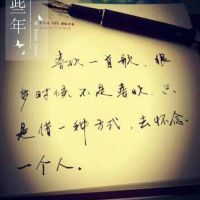 些年
喜欢一首歌，很
多时候不是喜欢，只
是借一种方式，去怀念
一个人。